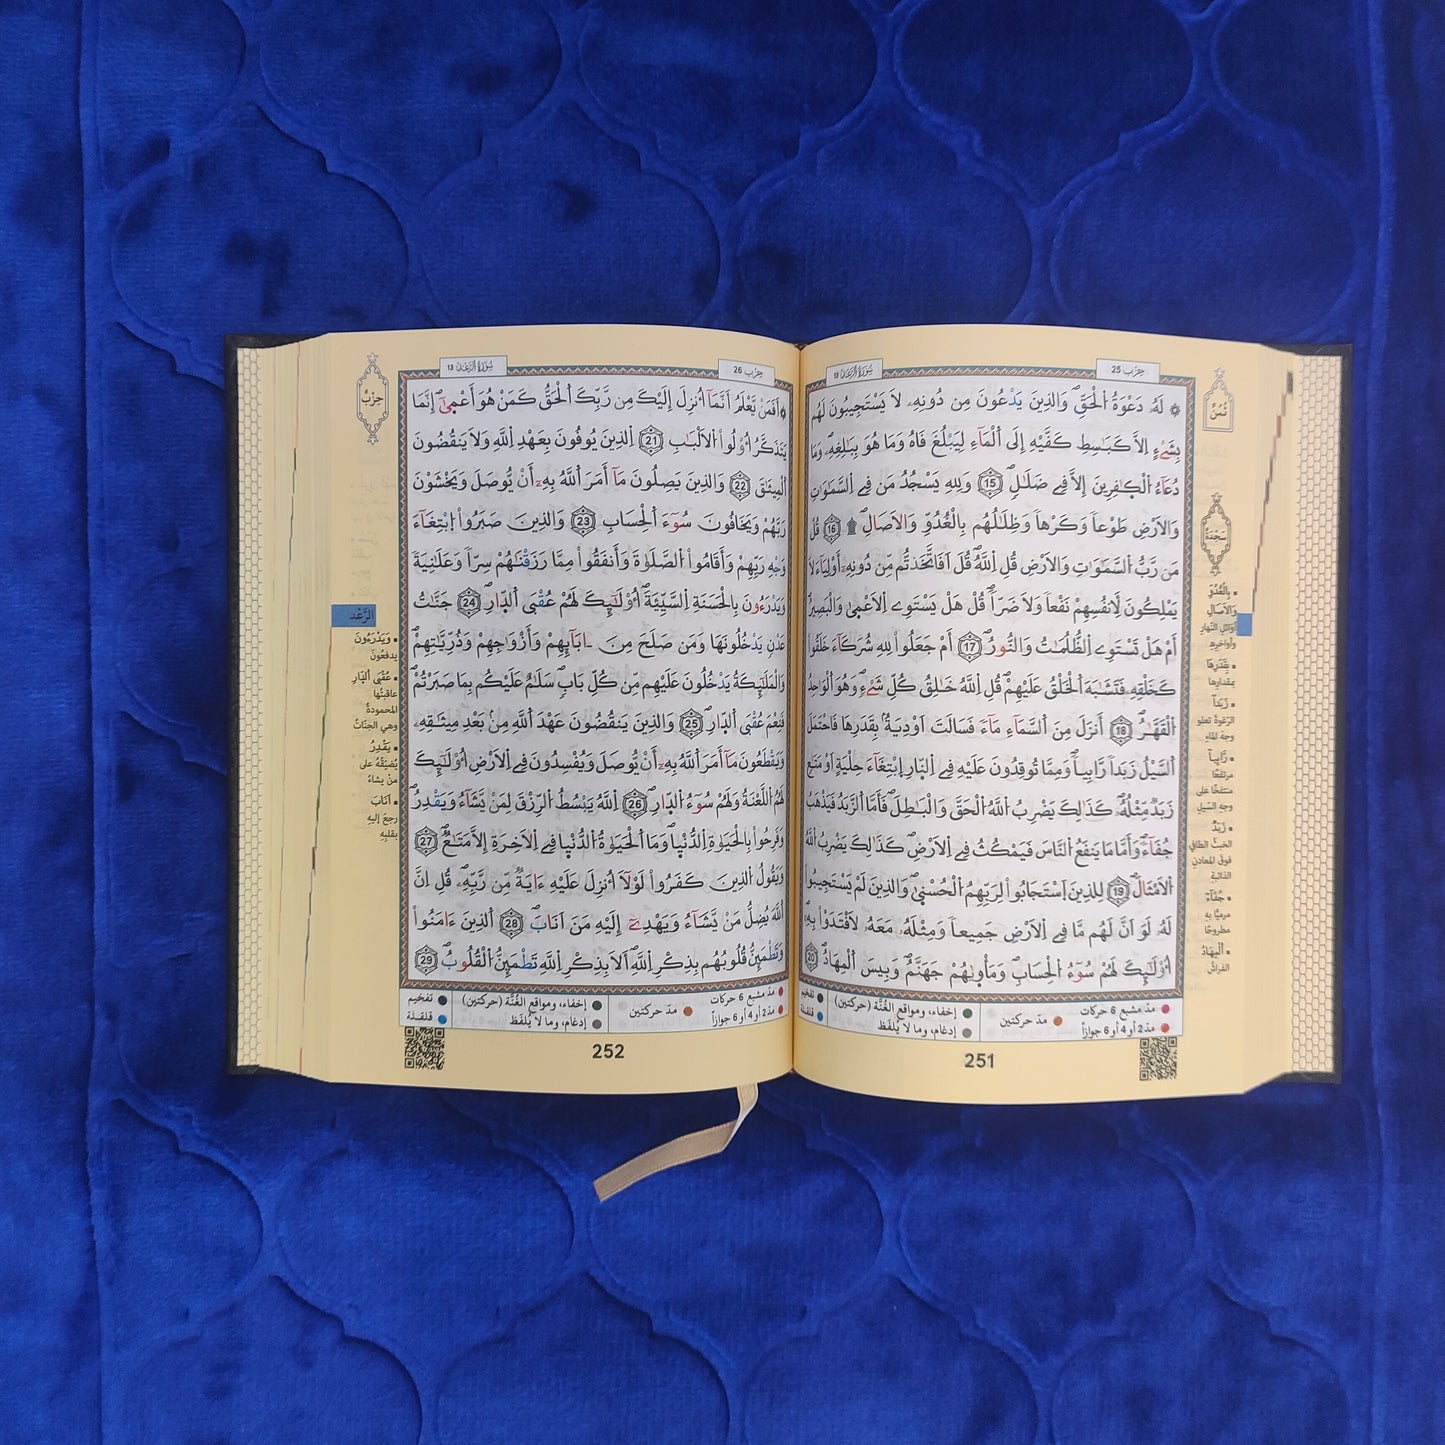 حِزْب 25
سُورَةُ الرَّعْد 13
۞ لَهُۥ دَعْوَةُ اُ۬لْحَقِّۖ وَالذِينَ يَدْعُونَ مِن دُونِهِۦ لَا يَسْتَجِيبُونَ لَهُم
بِشَےْءٍ اِلَّا كَبَٰسِطِ كَفَّيْهِ إِلَى اَ۬لْمَآءِ لِيَبْلُغَ فَاهُ وَمَا هُوَ بِبَٰلِغِهِۦۖ وَمَا
دُعَآءُ اُ۬لْكٰ۪فِرِينَ إِلَّا فِے ضَلَٰلٖۖ 15 وَلِلهِ يَسْجُدُ مَن فِے اِ۬لسَّمَٰوَٰتِ
وَالَارْضِ طَوْعاٗ وَكَرْهاٗ وَظِلَٰلُهُم بِالْغُدُوِّ وَالَاصَالِ۩ 16 قُلْ
مَن رَّبُّ اُ۬لسَّمَٰوَٰتِ وَالَارْضِ قُلِ اِ۬للَّهُۖ قُلَ اَفَاتَّخَذتُّم مِّن دُونِهِۦٓ أَوْلِيَآءَ لَا
يَمْلِكُونَ لِأَنفُسِهِمْ نَفْعاٗ وَلَا ضَرّاٗۖ قُلْ هَلْ يَسْتَوِے اِ۬لَاعْمَىٰ وَالْبَصِيرُ
أَمْ هَلْ تَسْتَوِے اِ۬لظُّلُمَٰتُ وَالنُّورُۖ 17 أَمْ جَعَلُواْ لِلهِ شُرَكَآءَ خَلَقُواْ
كَخَلْقِهِۦ فَتَشَٰبَهَ اَ۬لْخَلْقُ عَلَيْهِمْۖ قُلِ اِ۬للَّهُ خَٰلِقُ كُلِّ شَےْءٖۖ وَهُوَ اَ۬لْوَٰحِدُ
اُ۬لْقَهَّٰرُۖ 18 أَنزَلَ مِنَ اَ۬لسَّمَآءِ مَآءٗ فَسَالَتَ اَوْدِيَةُۢ بِقَدَرِهَا فَاحْتَمَلَ
اَ۬لسَّيْلُ زَبَداٗ رَّابِياٗۖ وَمِمَّا تُوقِدُونَ عَلَيْهِ فِے اِ۬لنّ۪ارِ اِ۪بْتِغَآءَ حِلْيَةٍ اَوْ مَتَٰعٖ
زَبَدٞ مِّثْلُهُۥۖ كَذَٰلِكَ يَضْرِبُ اُ۬للَّهُ اُ۬لْحَقَّ وَالْبَٰطِلَۖ فَأَمَّا اَ۬لزَّبَدُ فَيَذْهَبُ
جُفَآءٗۖ وَأَمَّا مَا يَنفَعُ اُ۬لنَّاسَ فَيَمْكُثُ فِے اِ۬لَارْضِۖ كَذَٰلِكَ يَضْرِبُ اُ۬للَّهُ
اُ۬لَامْثَالَۖ 19 لِلذِينَ اَ۪سْتَجَابُواْ لِرَبِّهِمُ اُ۬لْحُسْنَىٰۖ وَالذِينَ لَمْ يَسْتَجِيبُواْ
لَهُۥ لَوَ اَنَّ لَهُم مَّا فِے اِ۬لَارْضِ جَمِيعاٗ وَمِثْلَهُۥ مَعَهُۥ لَافْتَدَوْاْ بِهِۦٓۖ
أُوْلَٰٓئِكَ لَهُمْ سُوٓءُ اُ۬لْحِسَابِۖ وَمَأْو۪يٰهُمْ جَهَنَّمُۖ وَبِيسَ اَ۬لْمِهَادُۖ 20
ثُمُنُ
سَجْدَة
▪ بِالْغُدُوِّ
وَالَاصَالِ
أوائلِ النّهارِ
وأواخرِهِ
▪ بِقَدَرِهَا
بمقدارِها
▪ زَبَداٗ
الرّغوةُ تعلو
وجهَ الماءِ
▪ رَّابِياٗ
مرتفعًا
منتفخًا على
وجهِ السّيلِ
▪ زَبَدٞ
الخبثُ الطّافي
فوقَ المعادنِ
الذّائبةِ
▪ جُفَآءٗ
مرميًّا بهِ
مطروحًا
▪ اَ۬لْمِهَادُ
الفراشُ
مدّ مشبع 6 حركات
مدّ 2 أو 4 أو 6 جوازاً
مدّ حركتين
إخفاء، ومواقع الغُنَّة (حركتين)
إدغام، وما لا يُلفَظ
تفخيم
قلقلة
251
حِزْب 26
سُورَةُ الرَّعْد 13
۞ أَفَمَنْ يَّعْلَمُ أَنَّمَآ أُنزِلَ إِلَيْكَ مِن رَّبِّكَ اَ۬لْحَقُّ كَمَنْ هُوَ أَعْم۪ىٰٓۖ إِنَّمَا
يَتَذَكَّرُ أُوْلُواْ اُ۬لَالْبَٰبِ 21 اِ۬لذِينَ يُوفُونَ بِعَهْدِ اِ۬للَّهِ وَلَا يَنقُضُونَ
اَ۬لْمِيثَٰقَ 22 وَالذِينَ يَصِلُونَ مَآ أَمَرَ اَ۬للَّهُ بِهِۦٓ أَنْ يُّوصَلَ وَيَخْشَوْنَ
رَبَّهُمْ وَيَخَافُونَ سُوٓءَ اَ۬لْحِسَابِ 23 وَالذِينَ صَبَرُواْ اُ۪بْتِغَآءَ
وَجْهِ رَبِّهِمْ وَأَقَامُواْ اُ۬لصَّلَوٰةَ وَأَنفَقُواْ مِمَّا رَزَقْنَٰهُمْ سِرّاٗ وَعَلَٰنِيَةٗ
وَيَدْرَءُونَ بِالْحَسَنَةِ اِ۬لسَّيِّئَةَۖ أُوْلَٰٓئِكَ لَهُمْ عُقْبَى اَ۬لدّ۪ارِۖ 24 جَنَّٰتُ
عَدْنٖ يَدْخُلُونَهَا وَمَن صَلَحَ مِنَ اٰبَآئِهِمْ وَأَزْوَٰجِهِمْ وَذُرِّيَّٰتِهِمْۖ
وَالْمَلَٰٓئِكَةُ يَدْخُلُونَ عَلَيْهِم مِّن كُلِّ بَابٖ سَلَٰمٌ عَلَيْكُم بِمَا صَبَرْتُمْۖ
فَنِعْمَ عُقْبَى اَ۬لدّ۪ارِۖ 25 وَالذِينَ يَنقُضُونَ عَهْدَ اَ۬للَّهِ مِنۢ بَعْدِ مِيثَٰقِهِۦ
وَيَقْطَعُونَ مَآ أَمَرَ اَ۬للَّهُ بِهِۦٓ أَنْ يُّوصَلَ وَيُفْسِدُونَ فِے اِ۬لَارْضِ أُوْلَٰٓئِكَ
لَهُمُ اُ۬للَّعْنَةُ وَلَهُمْ سُوٓءُ اُ۬لدّ۪ارِۖ 26 اِ۬للَّهُ يَبْسُطُ اُ۬لرِّزْقَ لِمَنْ يَّشَآءُ وَيَقْدِرُۖ
وَفَرِحُواْ بِالْحَيَوٰةِ اِ۬لدُّنْي۪اۖ وَمَا اَ۬لْحَيَوٰةُ اُ۬لدُّنْي۪ا فِے اِ۬لَاخِرَةِ إِلَّا مَتَٰعٞۖ 27
وَيَقُولُ اُ۬لذِينَ كَفَرُواْ لَوْلَآ أُنزِلَ عَلَيْهِ ءَايَةٞ مِّن رَّبِّهِۦۖ قُلِ اِنَّ
اَ۬للَّهَ يُضِلُّ مَنْ يَّشَآءُ وَيَهْدِےٓ إِلَيْهِ مَنَ اَنَابَۖ 28 اَ۬لذِينَ ءَامَنُواْ
وَتَطْمَئِنُّ قُلُوبُهُم بِذِكْرِ اِ۬للَّهِۖ أَلَا بِذِكْرِ اِ۬للَّهِ تَطْمَئِنُّ اُ۬لْقُلُوبُۖ 29
حِزْبٌ
الرَّعْد
▪ وَيَدْرَءُونَ
يدفعُونَ
▪ عُقْبَى اَ۬لدّ۪ارِ
عاقبتُها
المحمودةُ
وهي الجنّاتُ
▪ يَقْدِرُ
يُضيّقُهُ على
منْ يشاءُ
▪ أَنَابَ
رجعَ إليهِ
بقلبِهِ
مدّ مشبع 6 حركات
مدّ 2 أو 4 أو 6 جوازاً
مدّ حركتين
إخفاء، ومواقع الغُنَّة (حركتين)
إدغام، وما لا يُلفَظ
تفخيم
قلقلة
252